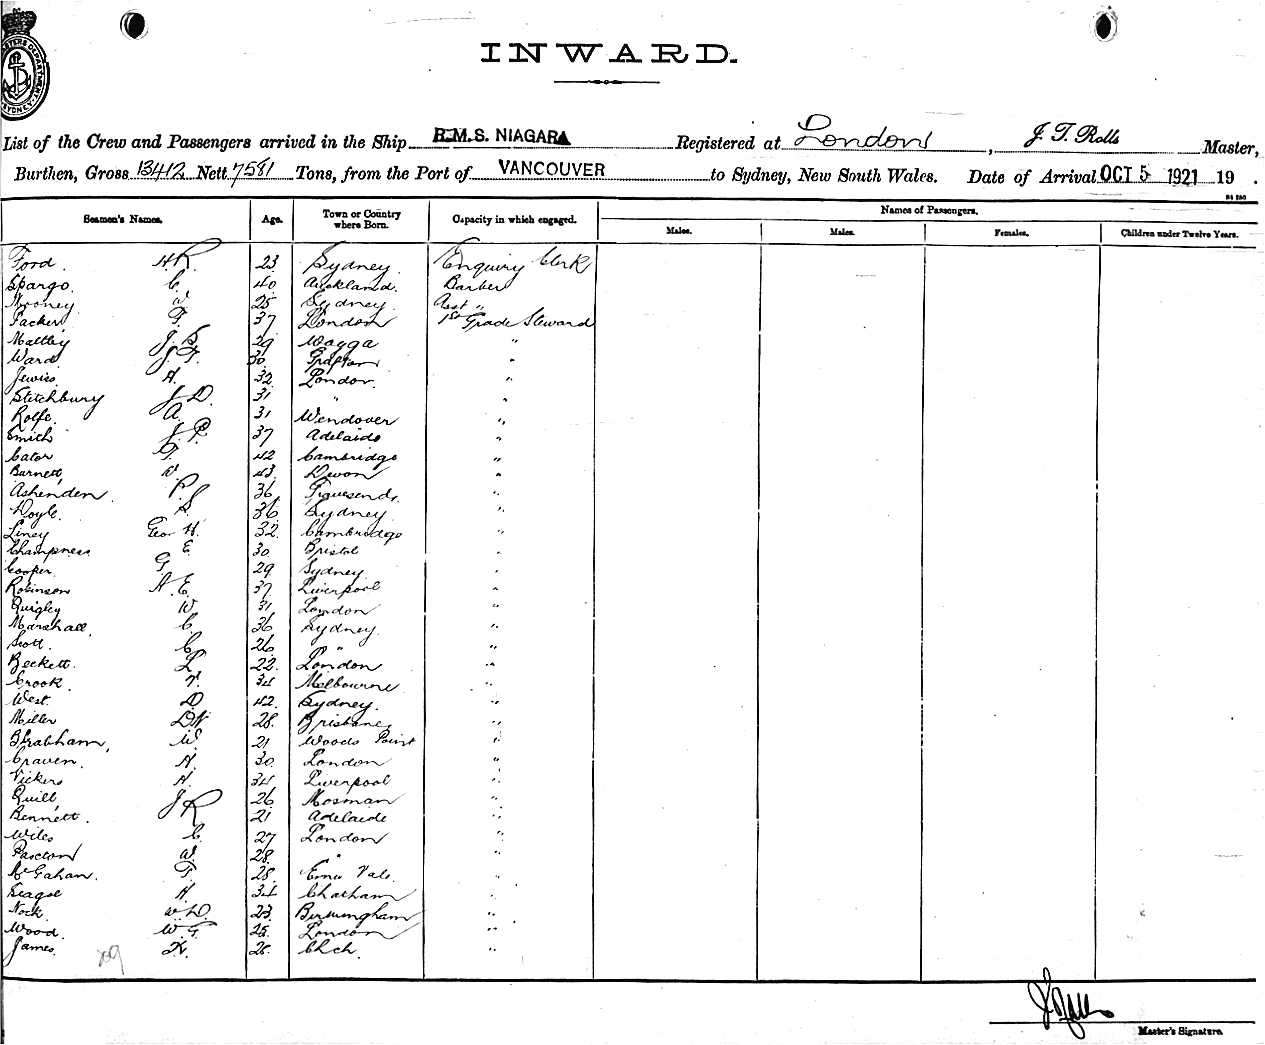 INWARD.
List of the Crew and Passengers arrived in the Ship R.M.S. NIAGARA Registered at London, J. T. Rolls Master,
Burthen, Gross 13412 Nett 7581 Tons, from the Port of VANCOUVER to Sydney, New South Wales. Date of Arrival OCT 5 1921 19 .
Seamen's Names. Age. Town or Country where Born. Capacity in which engaged. Names of Passengers.
Males. Males. Females. Children under Twelve Years.
Ford. H R 23 Sydney. Enquiry Clerk
Spargo. C. 40 Auckland. Barber
Mooney W 25 Sydney. Asst "
Packer F. 37 London 1st Grade Steward
Maltby J. B 29 Wagga "
Ward J. F. 30 Grafton "
Jewiss H. 32 London. "
Stitchbury J. D. 31 " "
Rolfe. A. 31 Wendover "
Smith J. P. 37 Adelaide "
Cator F. 42 Cambridge "
Barnett, W. 43 Devon "
Ashenden. P. J. 36 "
Doyle. S. 36 Sydney "
Liney Geo H. 32 Cambridge "
Champness E. 30 Bristol "
Cooper. G. 29 Sydney "
Robinson A. E. 37 Liverpool "
Quigley W. 31 London "
Marshall. C. 36 Sydney. "
Scott. C. 26 " "
Beckett. L 22 London "
Crook. 34 Melbourne "
West. D 42. Sydney. "
Miller D W 28. Brisbane "
Brabham, W. 21 Woods Point "
Craven. H. 30. London "
Vickers H. 34 Liverpool "
Quill, J 26 Mosman "
Bennett. R 21 Adelaide "
Wiles C. 27 London "
W. 28. " "
McGahan. F. 28. Emu Vale. "
Teague H. 34 Chatham "
Nock W. D. 23. Birmingham "
Wood. W. F. 25. London "
James. 28. Chch. "
Master's Signature.